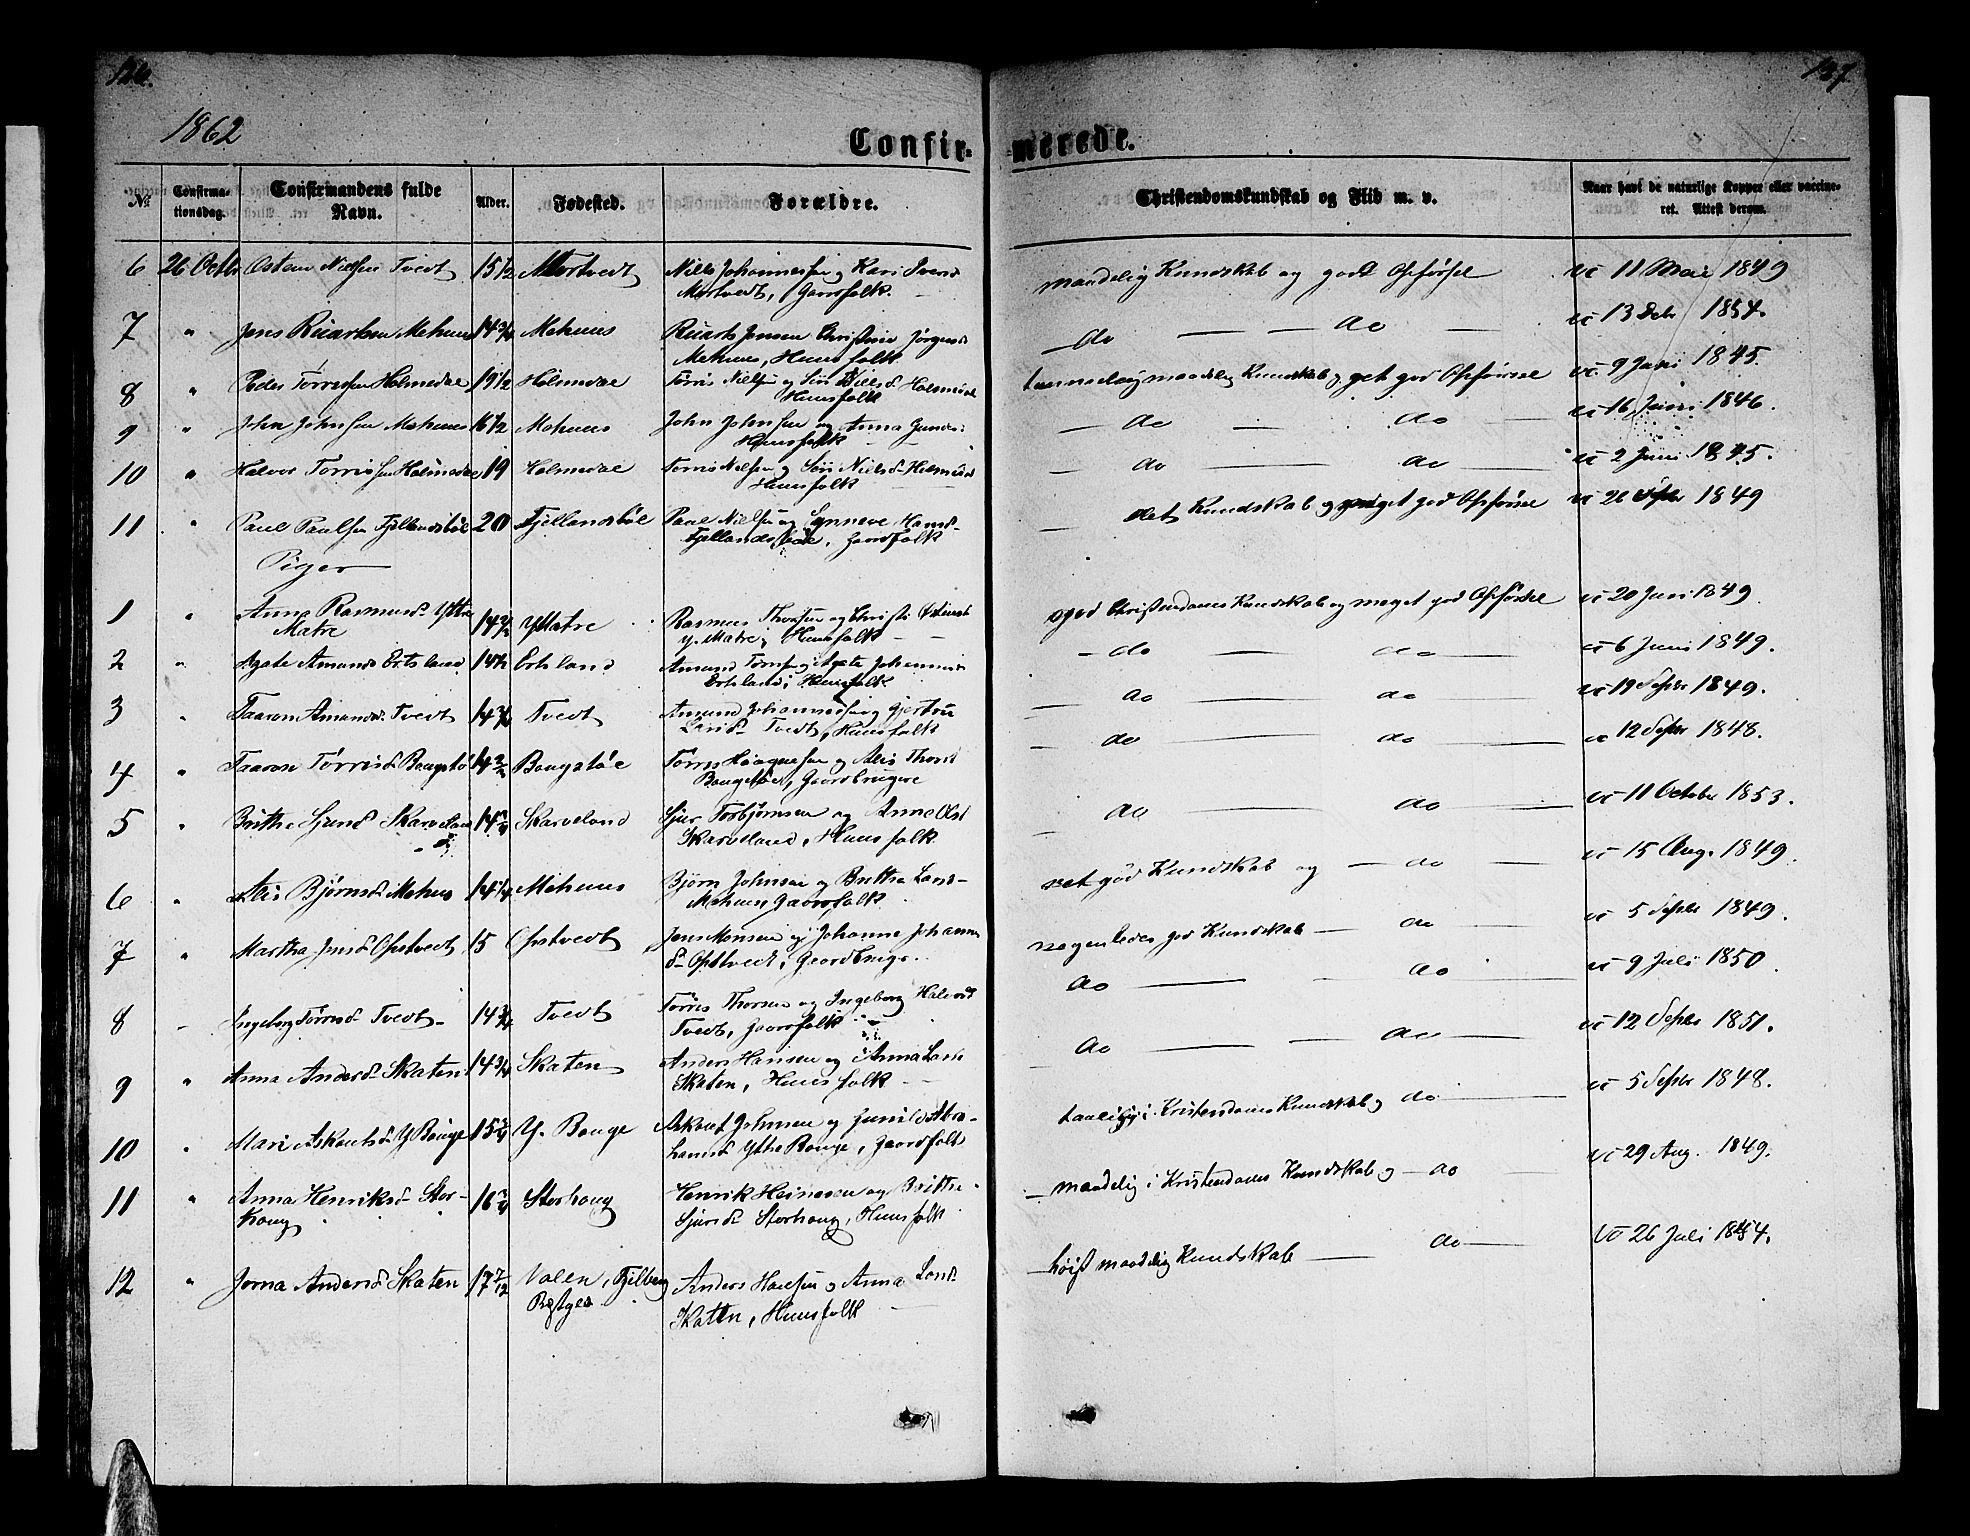 126.
127
1862
Confir-
merede.
No
Confirma-
tionsdag.
Confirmandens fulde
Navn.
Alder.
Fødested.
Forældre.
Christendomskundskab og Flid m. v.
Naar havt de naturlige Kopper eller vaccine-
ret. Attest derom.
6 26 Octbr Osten Nielsen Tvedt 15 1/2 Mortvedt Niels Johannessen og Kari
Mortvedt, Gaardfolk.
maadelig Kundskab og godt Opførsel vc 11 Mai 1849
7 " Jens Mehuus 14 3/4 Mehuus Jensen Christine Jørgensd
Mehuus, Huusfolk
do do vc 13 1854.
8 " Peder Torrissen Holmedal 19 1/2 Holmedal Torris Nielsen og Siri Nielsd Holmedal
Huusfolk
maadelig Kundskab og god Opførsel vc 9 Juni 1845.
9 " John Johnsen Mehuus 16 1/2 Mehuus John Johnsen og Anna
Huusfolk
do do vc 16 Juni 1846.
10 " Halvor Torrissen Holmedal 19 Holmedal Torris Nielsen og Siri Nielsd Holmedal
Huusfolk
do do vc 2 Juni 1845.
11 " Paul Paulsen Fjellandsbøl 20 Fjellandsbøl Paul Nielsen og Synneve Hansd
Fjellandsbøl, Gaardfolk
Kundskab og god Opførsel vc 26 Septbr 1849
Piger
1 " Anna Rasmusd Ytre
Matre
14 Y Matre Rasmus Thorsen og Christi
Y. Matre, Huusfolk
god Christendoms Kundskab og meget god Opførsel vc 20 Juni 1849
2 " Agate Amunds Ertsland 14 1/2 Ertsland Amund og Agate Johannesd
Ertsland, Huusfolk
do do vc 6 Juni 1849.
3 " Taaron Amunds. Tvedt 14 3/4 Tvedt Amund Johannessen og Gjertru
Larsd Tvedt, Huusfolk
do do vc 19 Septbr 1849.
4 " Taaron Tørrisd Baugstø 14 Baugstøe Tørris Haagensen og Alis Thorsd
Baugstøe, Gaardbrugere
do do vc 12 Septbr 1848.
5 " Brithe Sjursd Skarveland 14 Skarveland Sjur Torbjørnsen og Anne Olsd
Skarveland, Huusfolk
do do vc 11 October 1853.
6 " Alis Bjørnsd Mehus 14 1/4 Mehuus Bjørn Johnsen og Brithe Larsd
Mehuus Gaardfolk
ret god Kundskab og do vc 15 Aug. 1849.
7 " Martha Jensd Opstvedt 15 Opstvedt Jens Monsen og Johanne Johannes
d Opstvedt, Gaardbruge
nogenledes god Kundskab do vc 5 Septbr 1849.
8 Ingeborg Tørresd Tvedt 14 3/4 Tvedt Tørres Thorsen og Ingeborg Halvorsd
Tvedt, Gaardfolk
do do vc 9 Juli 1850.
9 " Anna Andersd Skaten 14 3/4 Skaten Anders Hansen og Anna Larsd
Skaten, Huusfolk
do do vc 12 Septbr 1851.
10 " Mari Askautsd Y Bauge 15 Y. Bauge Askaut Johnsen og Gunild Abra-
hamsd Ytre Bauge, Gaardfolk
taalelig i Kristendoms Kundskab og do vc 5 Septbr 1848.
11 " Anna Henriksd Stor-
haug
16 Storhaug Henrik Heinesen og Brithe
Sjursd Storhaug, Huusfolk
maadelig i Kristendoms Kundskab og do vc 29 Aug. 1849.
12 " Jorna Andersd Skaten 17 7/12 Valen, Fjelberg
Prestgjeld
Anders Hansen og Anna Larsd
Skaten, Huusfolk
høist maadelig Kundskab do vc 26 Juli 1854.